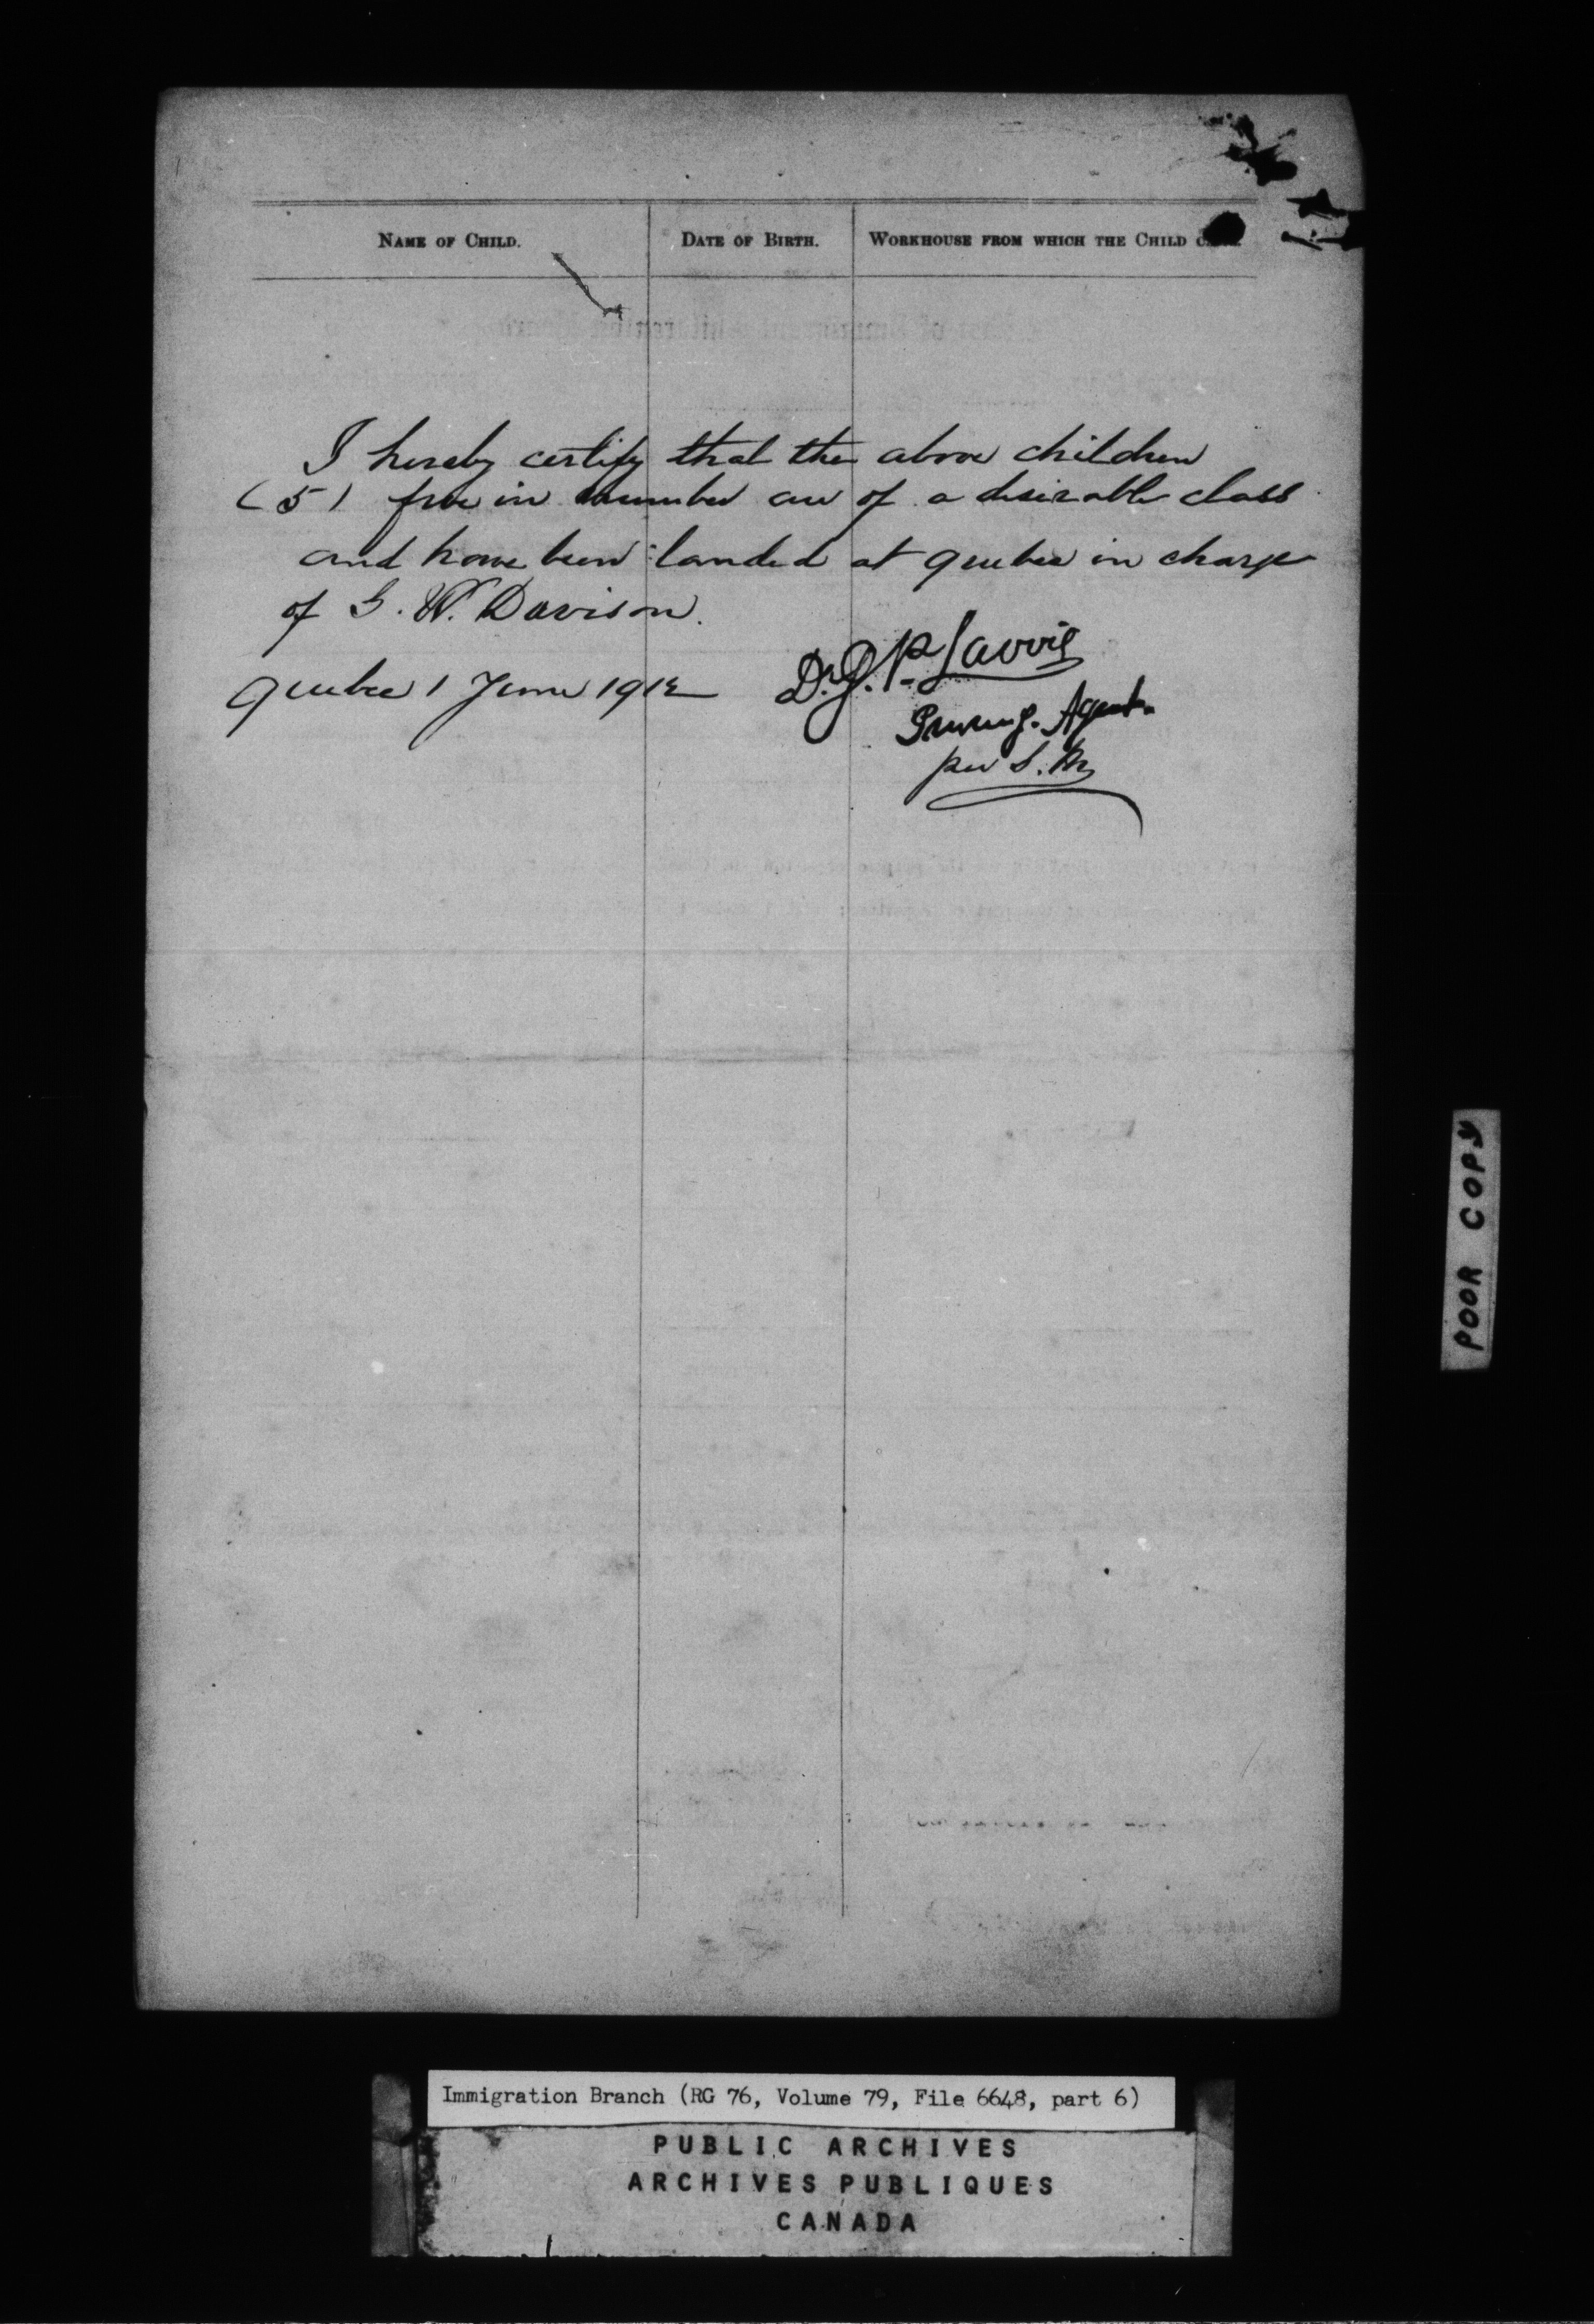 NAME OF CHILD. DATE OF BIRTH. WORKHOUSE FROM WHICH THE CHILD
I hereby certify that the above children
(5) five in number are of a desirable class
and have been landed at Quebec in charge
of G. W. Davison.
Quebec 1 June 1912
Dr. J. P. Lavvie
Immig. Agent.
per S. M
POOR COPY
Immigration Branch (RG 76, Volume 79, File 6648, part 6)
PUBLIC ARCHIVES
ARCHIVES PUBLIQUES
CANADA